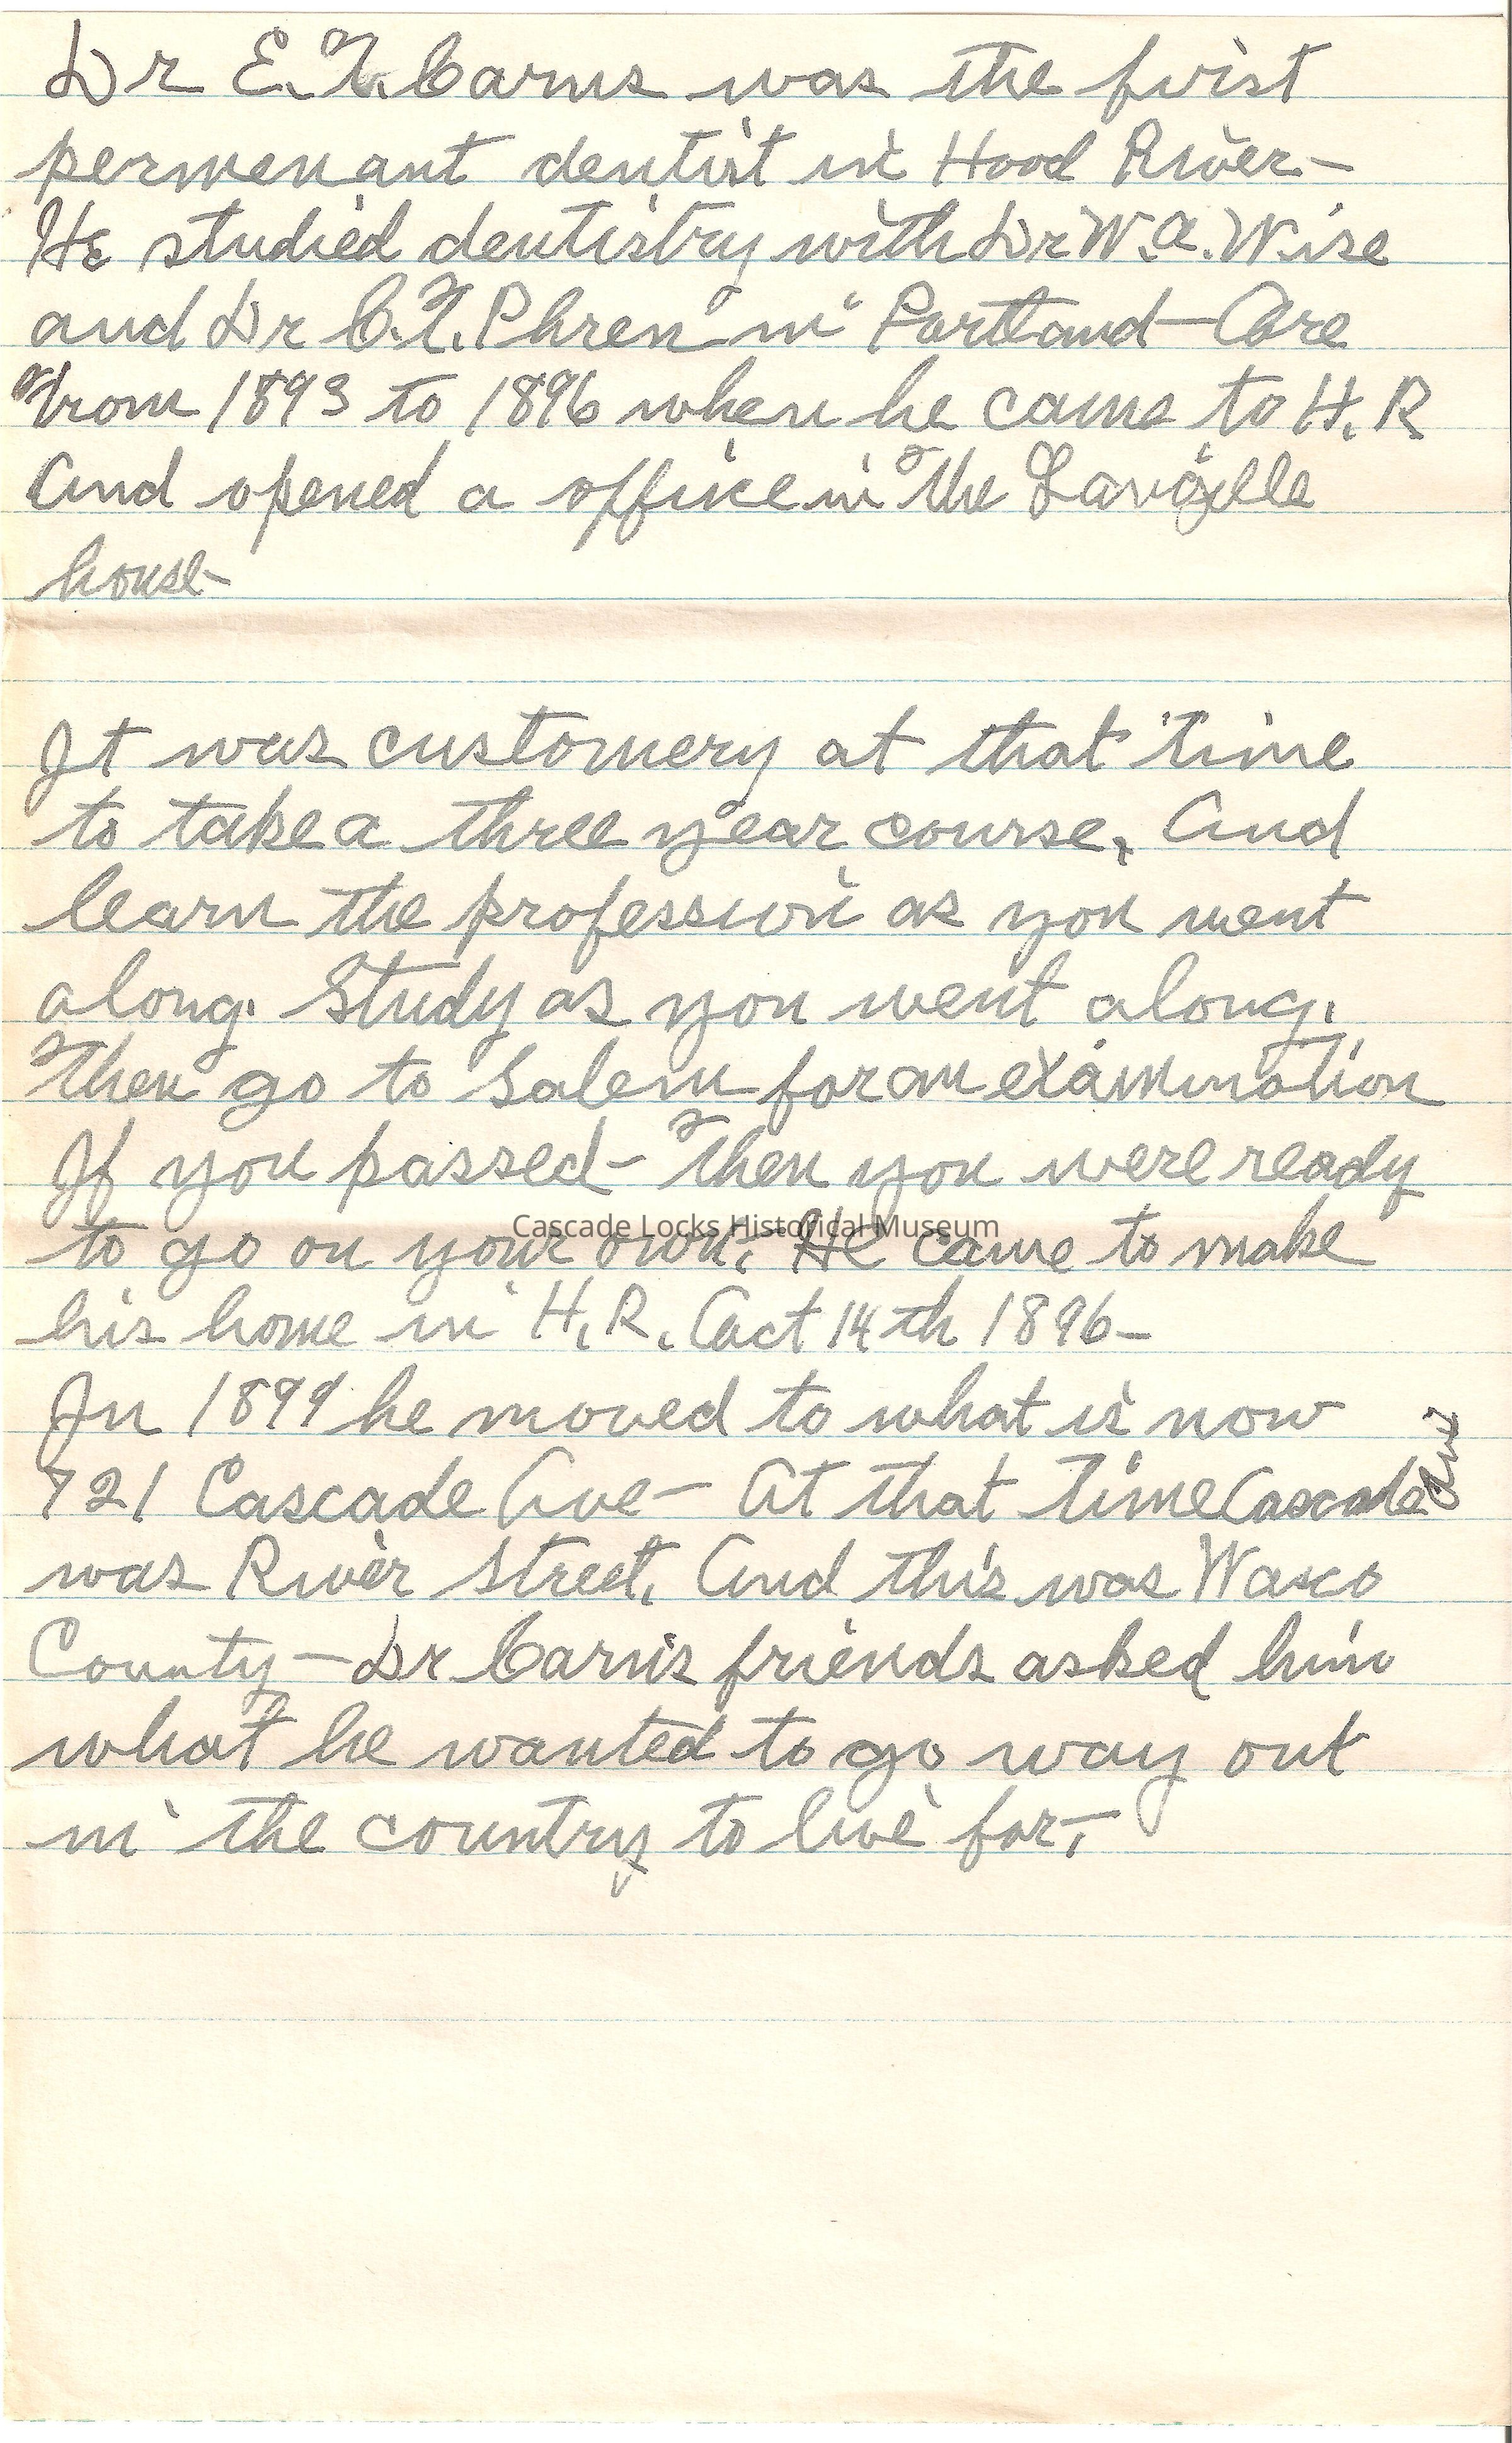 Dr E.T. Carns was the first
permenant dentist in Hood River-
He studied dentistry with Dr W.A. Wise
and Dr C.T. Phren in Portland-Ore
From 1893 to 1896 when he came to H.R
And opened a office in The
house-
It was customery at that time
to take a three year course, And
learn the profession as you went
along. Study as you went along.
Then go to Salem for an examination
If you passed- Then you were ready
Cascade Locks Historical Museum
to go on your own. He came to make
his home in H.R. Oct 14th 1896-
In 1899 he moved to what is now
721 Cascade Ave- At that time Cascade Ave
was River Street, And this was Wasco
County-Dr Carns friends asked him
what he wanted to go way out
in the country to live for.-